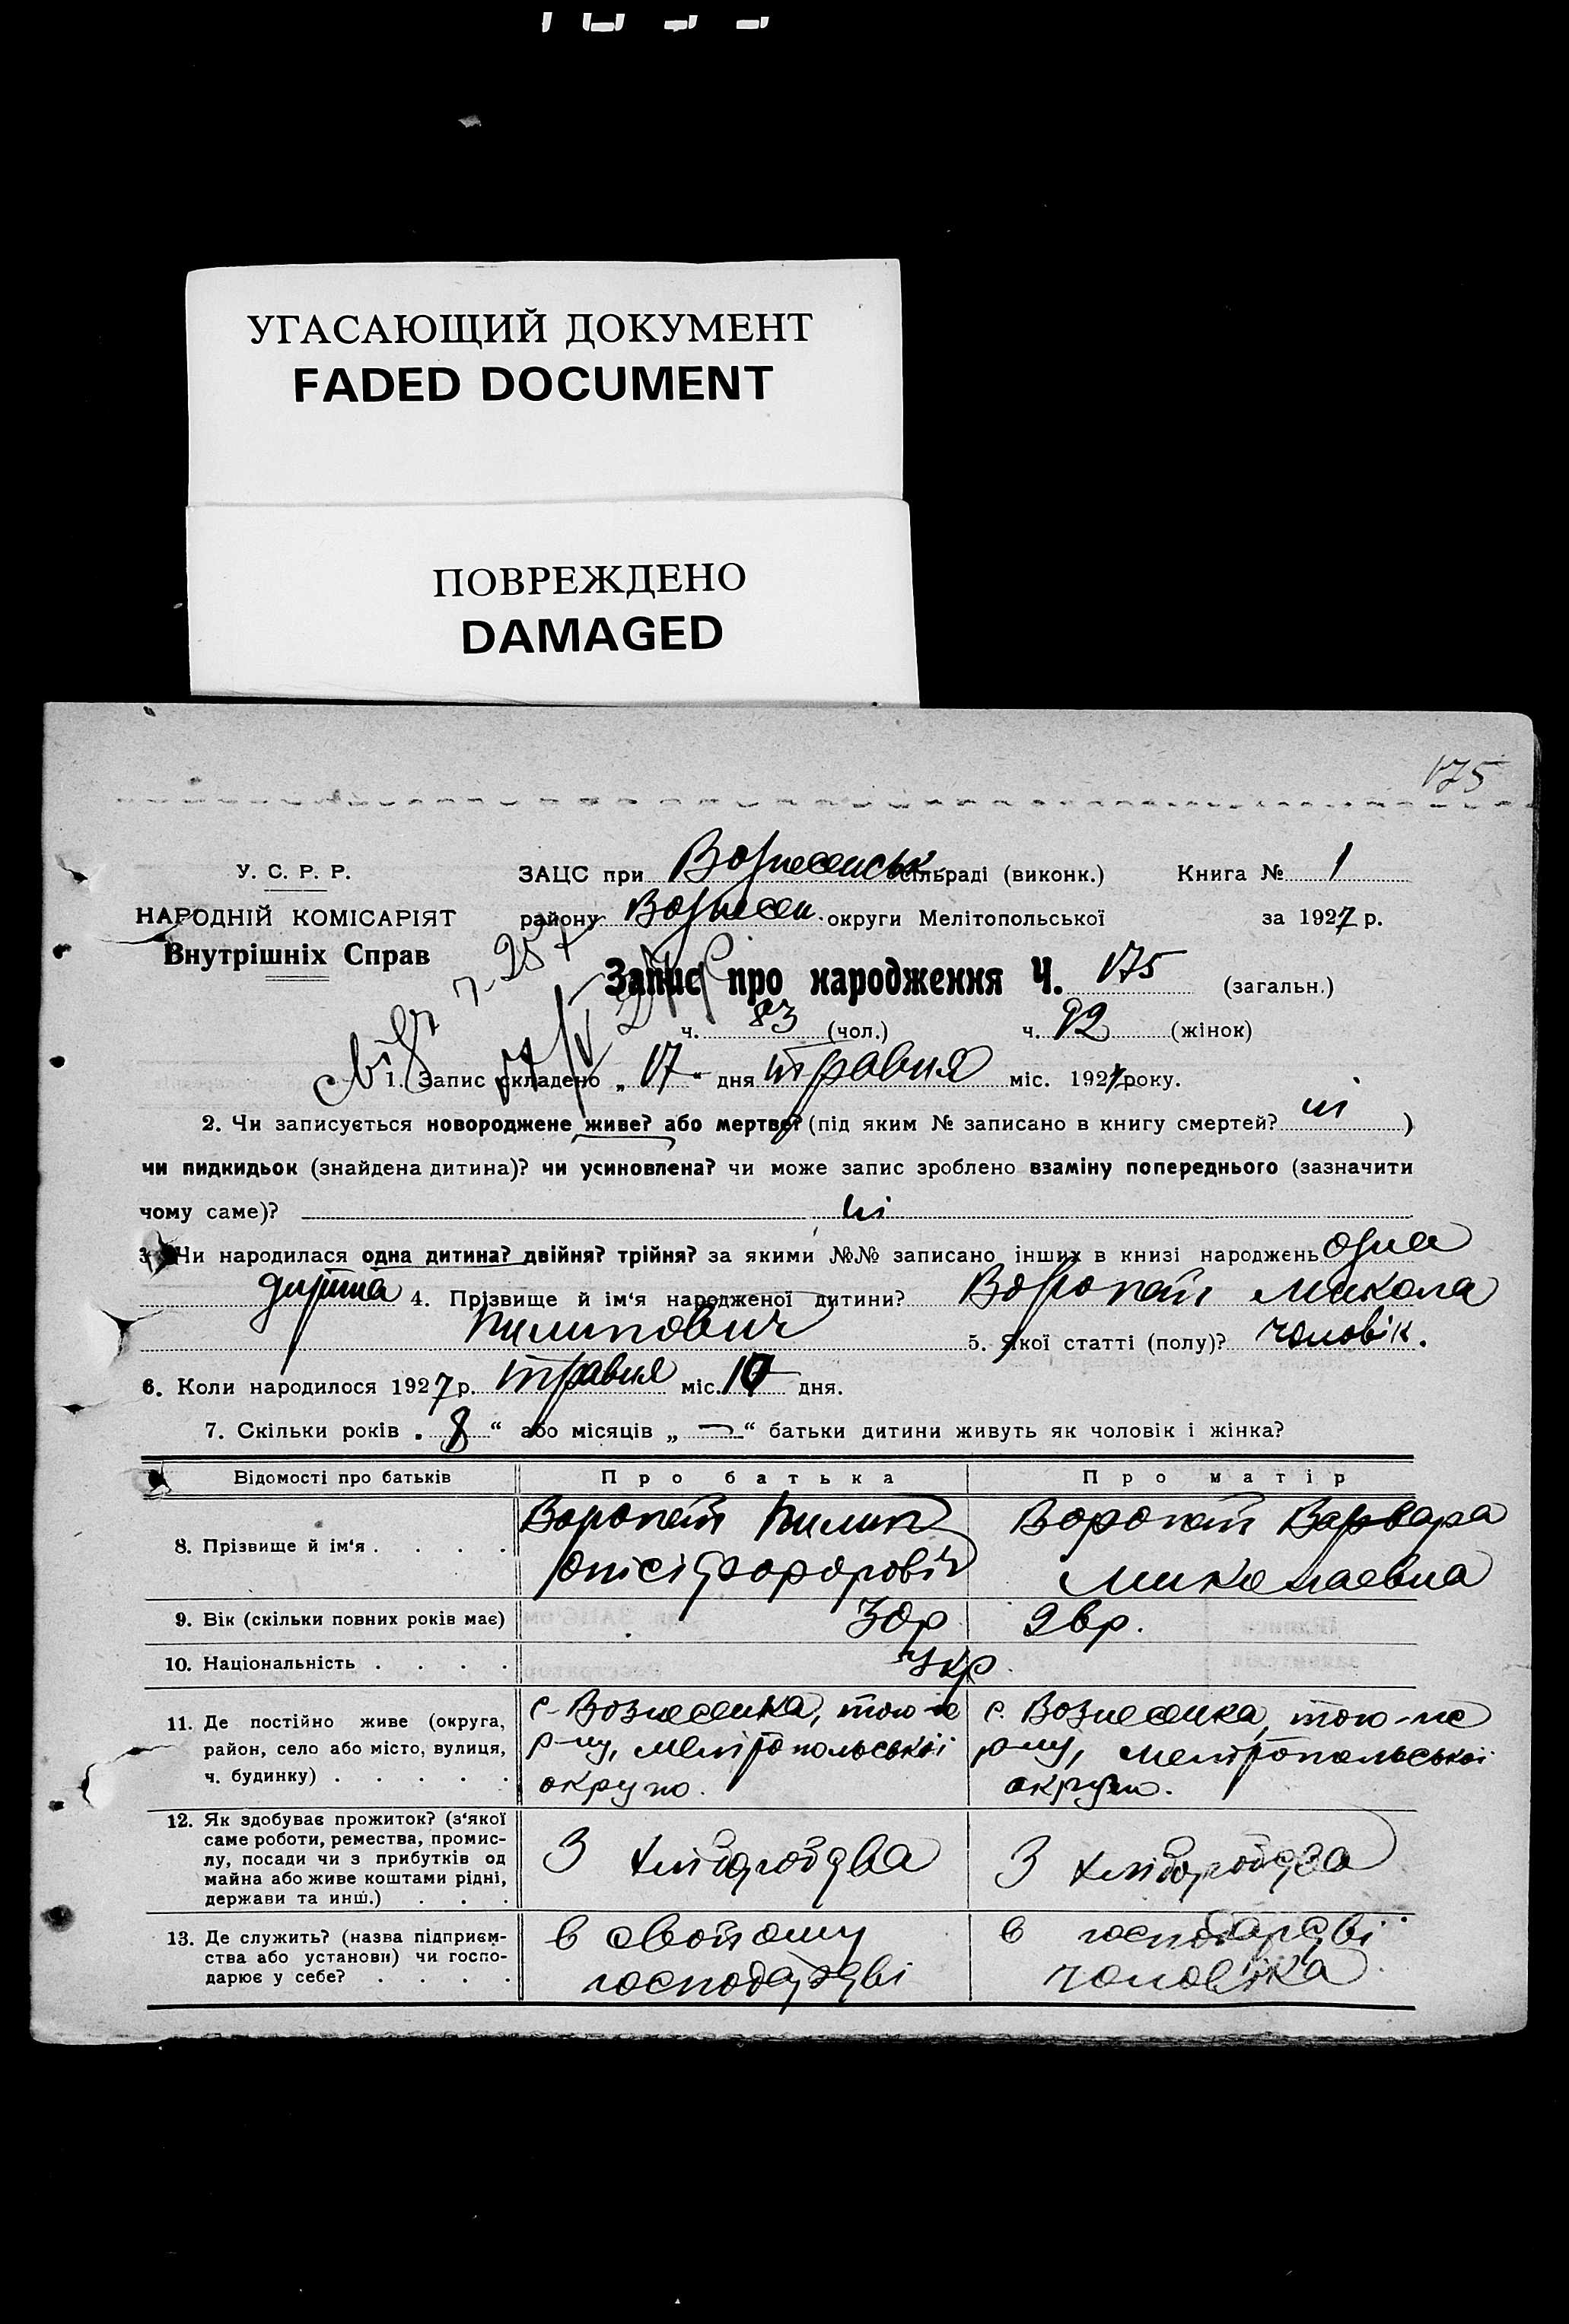 УГАСАЮЩИЙ ДОКУМЕНТ
FADED DOCUMENT
ПОВРЕЖДЕНО
DAMAGED
175
У. С. Р. Р.
НАРОДНІЙ КОМІСАРІЯТ
Внутрішніх Справ
ЗАЦС при Вознесенськ сільраді (виконк.) Книга № 1
району Вознесен. округи Мелітопольської за 1927 р.
Запис про народження Ч. 175 (загальн.)
ч. 83 (чол.) ч. 92 (жінок)
1. Запис складено „ 17 “ дня травня міс. 1927 року.
2. Чи записується новороджене живе? або мертве? (під яким № записано в книгу смертей? ні )
чи пидкидьок (знайдена дитина)? чи усиновлена? чи може запис зроблено взаміну попереднього (зазначити
чому саме)? ні
3. Чи народилася одна дитина? двійня? трійня? за якими №№ записано інших в книзі народжень одна
дитина 4. Прізвище й ім'я народженої дитини? Воропай Микола
Пилипович 5. Якої статті (полу)? чоловік.
6. Коли народилося 1927 р. травня міс. дня.
7. Скільки років „ 8 “ або місяців „ — “ батьки дитини живуть як чоловік і жінка?
Відомості про батьків Про батька Про матір
8. Прізвище й ім'я . . . . Воропай Пилип Воропай Варвара
Онісіфорович Миколаевна
9. Вік (скільки повних років має) 30р.
10. Національність . . . . Укр.
11. Де постійно живе (округа, район, село або місто, вулиця, ч. будинку) . . . . .
с. Вознесенка, того-же р-ну, Мелітопольської округи.
с. Вознесенка, того-же р-ну, Мелітопольської округи.
12. Як здобуває прожиток? (з'якої саме роботи, ремества, промислу, посади чи з прибутків од майна або живе коштами рідні, держави та инш.) . . .
З хліборобдва
З хліборобдва
13. Де служить? (назва підприємства або установи) чи господарює у себе? . . . .
в свойому господардві
в господардві чоловіка